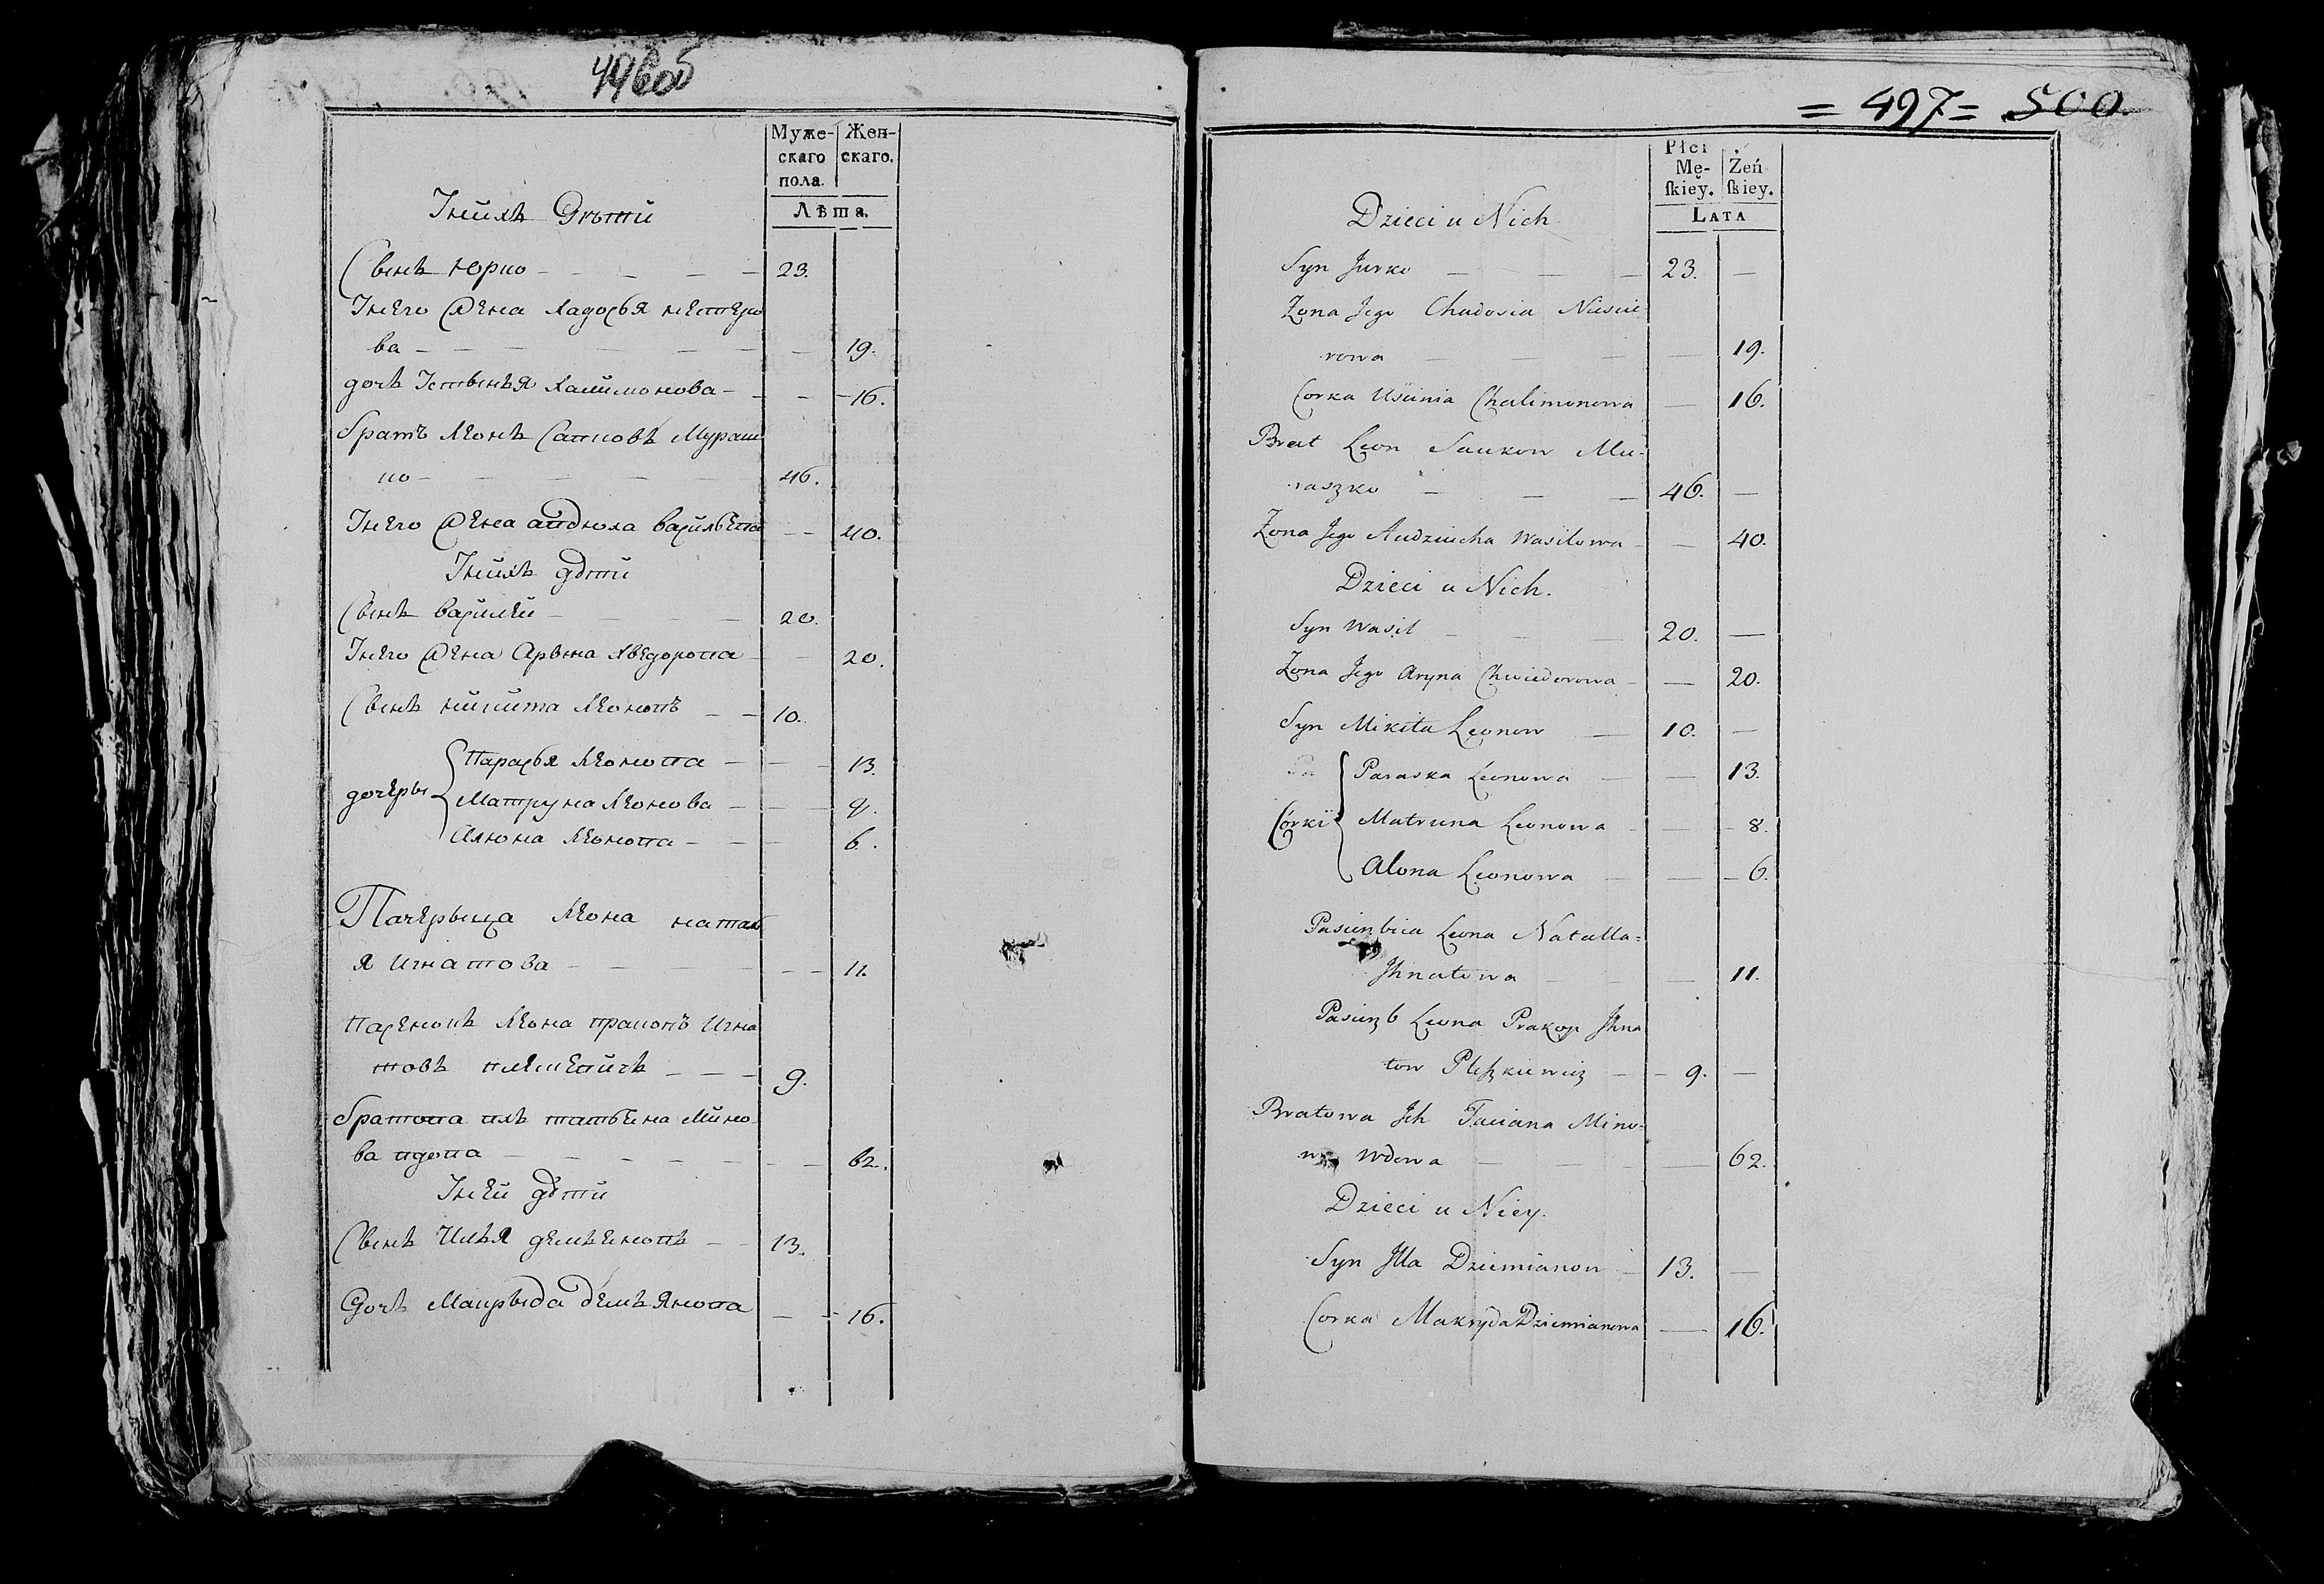 496об
Муже- Жен-
скаго скаго.
пола.
Лѣта.
Унихъ Дѣти
Сынъ Юрко 23.
Унего Жена Хадосья Нестеро
ва 19.
дочь Устинья Халимонова 16.
Братъ Леонъ Савковъ Мураш
ко 46.
Унего Жена авдюха василева 40.
Унихъ дѣти
Сынъ василей 20.
Унего Жена Арына Хведорова 20.
Сынъ никита Леоновъ 10.
дочеры
Парасья Леонова 13.
Матруна Леонова 8.
Алюона Леонова 6.
Пачерыца Леона натал
я игнатова 11.
пасенокъ Леона пракопъ игна
товъ 9.
братова ихъ татьяна Мино
ва вдова 62.
Уней дѣти
Сынъ Илья демьяновъ 13.
Дочь Макрыда демьянова 16.
= 497 = 500.
Płci
Mę- Żeń
skiey. skiey.
LATA
Dzieci u Nich
Syn Jurko 23.
Zona Jego Chadosia Niescie
rowa 19.
Corka Uscinia Chalimonowa 16.
Brat Leon Saukow Mu-
raszko 46.
Zona Jego Audziucha Wasilowa 40.
Dzieci u Nich.
Syn Wasil 20.
Zona Jego Aryna Chwiedorowa 20.
Syn Mikita Leonow 10.
Paraska Leonowa 13.
Córki Matruna Leonowa 8.
Alona Leonowa 6.
Pasierzbica Leona Natalla=
Jhnatowa 11.
Pasierzb Leona Prakop Jhna
tow Pleszkiewicz 9.
Bratowa Jch Taciana Mino-
wa Wdowa 62.
Dzieci u Niey.
Syn Jlla Dziemianow 13.
Corka Makryda Dziemianowa 16.